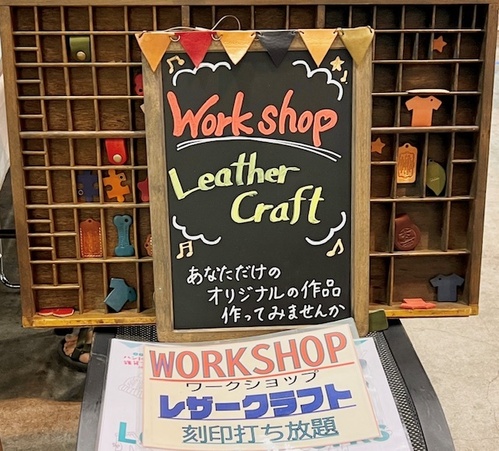 Workshop
Leather
Craft
あなただけの
オリジナルの作品
作ってみませんか
WORKSHOP
ワークショップ
レザークラフト
刻印打ち放題